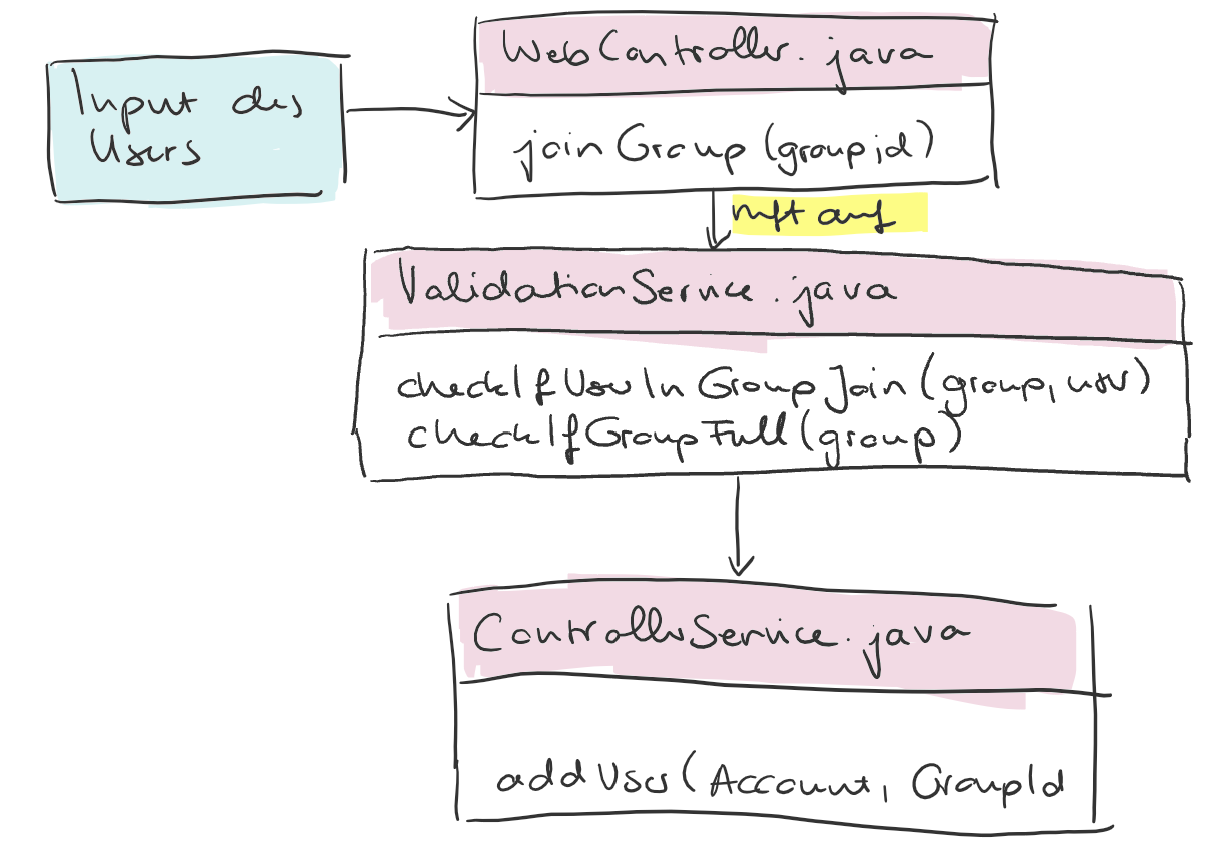 Input des
Users
WebController.java
joinGroup(groupid)
ruft auf
ValidationService.java
checkIfUserInGroupJoin(group, user)
checkIfGroupFull(group)
ControllerService.java
addUser(Account, GroupId